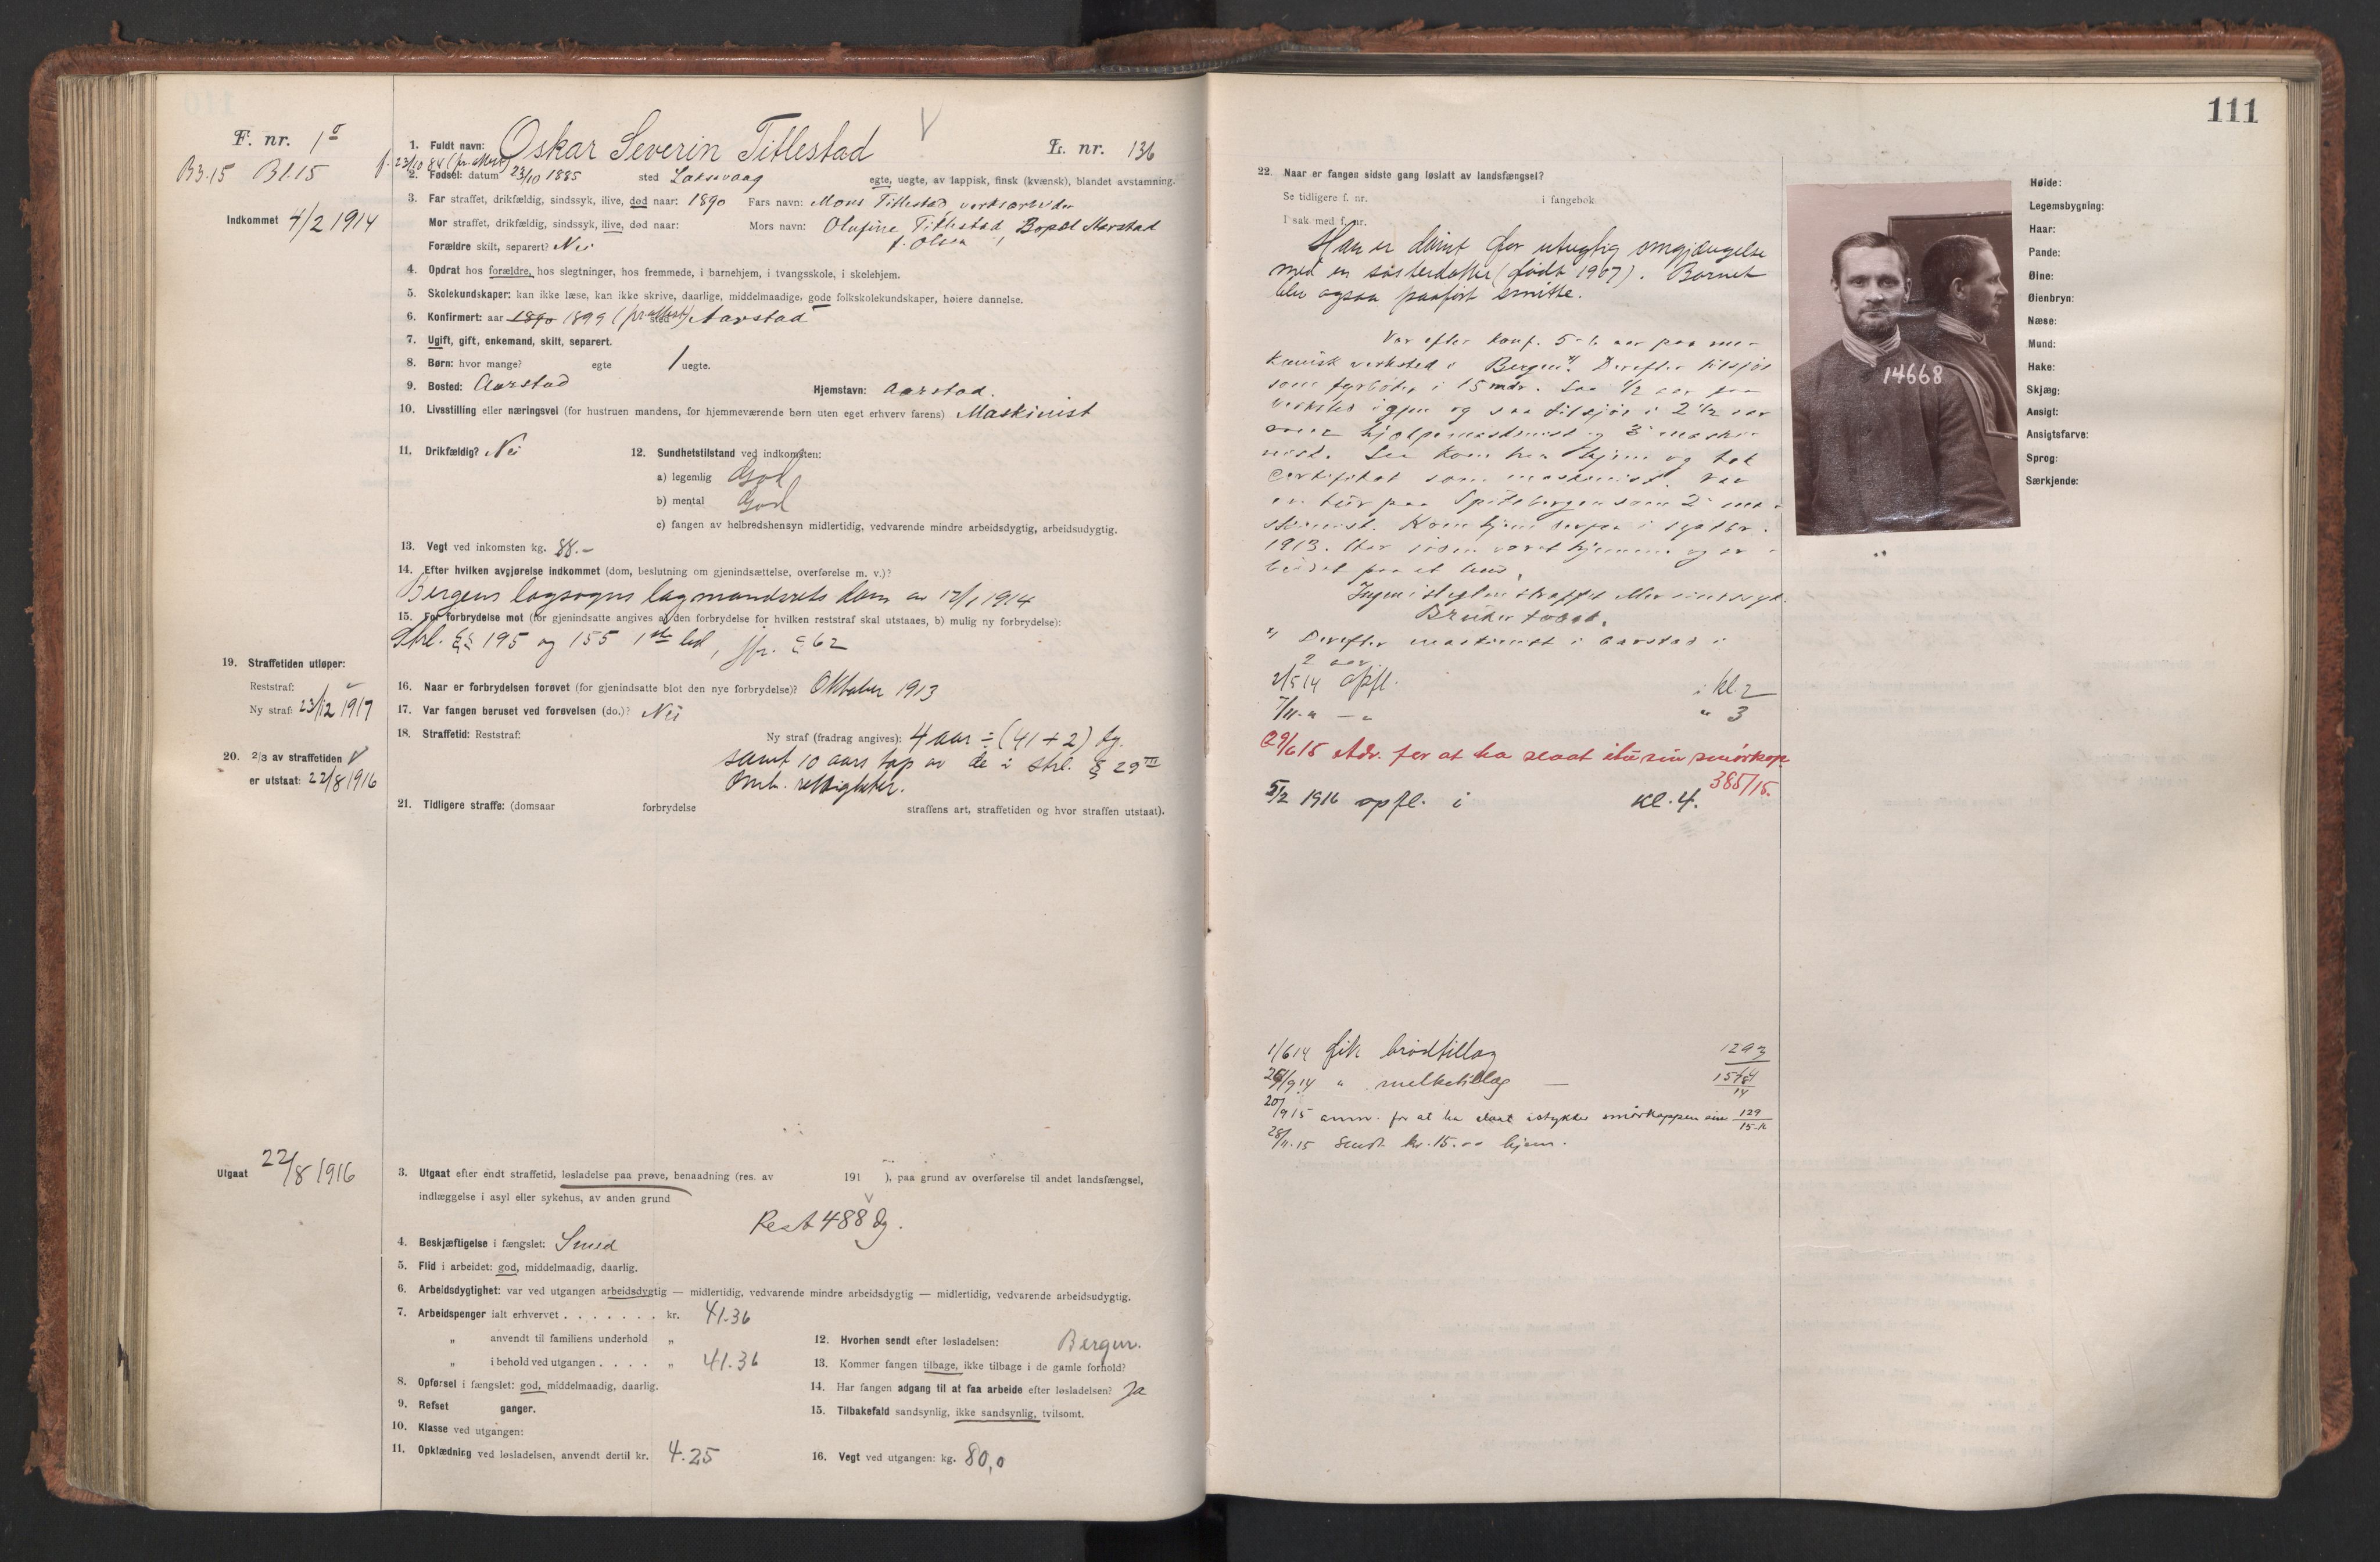 F. nr. 1º
B3.15 Bl.15
Indkommet 4/2 1914
1. Fuldt navn: Oskar Severin Titlestad V L. nr. 136
f. 23/10 84 (pr. attest)
2. Fødsel: datum 23/10 1885 sted Laksevaag egte, uegte, av lappisk, finsk (kvænsk), blandet avstamning.
3. Far straffet, drikfældig, sindssyk, ilive, død naar: 1890 Fars navn: Mons Titlestad verksarbeider
Mor straffet, drikfældig, sindssyk, ilive, død naar: Mors navn: Olufine Titlestad, Bopæl Aarstad
f. Olsen
Forældre skilt, separert? Nei
4. Opdrat hos forældre, hos slegtninger, hos fremmede, i barnehjem, i tvangsskole, i skolehjem.
5. Skolekundskaper: kan ikke læse, kan ikke skrive, daarlige, middelmaadige, gode folkskolekundskaper, høiere dannelse.
6. Konfirmert: aar 1890 1899 (pr. attest) sted Aarstad
7. Ugift, gift, enkemand, skilt, separert.
8. Børn: hvor mange? egte 1 uegte.
9. Bosted: Aarstad Hjemstavn: Aarstad.
10. Livsstilling eller næringsvei (for hustruen mandens, for hjemmeværende børn uten eget erhverv farens) Maskinist
11. Drikfældig? Nei 12. Sundhetstilstand ved indkomsten:
a) legemlig God
b) mental God
c) fangen av helbredshensyn midlertidig, vedvarende mindre arbeidsdygtig, arbeidsudygtig.
13. Vegt ved inkomsten kg. 88.-
14. Efter hvilken avgjørelse indkommet (dom, beslutning om gjenindsættelse, overførelse m. v.)?
Bergens lagsogns lagmandsrets dom av 12/1 1914
15. For forbrydelse mot (for gjenindsatte angives a) den forbrydelse for hvilken reststraf skal utstaaes, b) mulig ny forbrydelse):
Strl. §§ 195 og 155 1ste led, jfr. § 62
19. Straffetiden utløper:
Reststraf:
Ny straf: 23/12 1917
16. Naar er forbrydelsen forøvet (for gjenindsatte blot den nye forbrydelse)? Oktober 1913
17. Var fangen beruset ved forøvelsen (do.)? Nei
18. Straffetid: Reststraf: Ny straf (fradrag angives): 4 aar ÷ (41 + 2) dg.
samt 10 aars tap av de i strl. § 29 III
omh. rettigheter.
20. 2/3 av straffetiden V
er utstaat: 22/8 1916
21. Tidligere straffe: (domsaar forbrydelse straffens art, straffetiden og hvor straffen utstaat).
Utgaat 22/8 1916
3. Utgaat efter endt straffetid, løsladelse paa prøve, benaadning (res. av 191 ), paa grund av overførelse til andet landsfængsel,
indlæggelse i asyl eller sykehus, av anden grund
Rest 488 dg.
4. Beskjæftigelse i fængslet: Smed
5. Flid i arbeidet: god, middelmaadig, daarlig.
6. Arbeidsdygtighet: var ved utgangen arbeidsdygtig — midlertidig, vedvarende mindre arbeidsdygtig — midlertidig, vedvarende arbeidsudygtig.
7. Arbeidspenger ialt erhvervet . . . . . . . kr. 41.36
„ anvendt til familiens underhold „
„ i behold ved utgangen . . . . „ 41.36
8. Opførsel i fængslet: god, middelmaadig, daarlig.
9. Refset ganger.
10. Klasse ved utgangen:
11. Opklædning ved løsladelsen, anvendt dertil kr. 4.25
12. Hvorhen sendt efter løsladelsen: Bergen.
13. Kommer fangen tilbage, ikke tilbage i de gamle forhold?
14. Har fangen adgang til at faa arbeide efter løsladelsen? Ja
15. Tilbakefald sandsynlig, ikke sandsynlig, tvilsomt.
16. Vegt ved utgangen: kg. 80,0
111
22. Naar er fangen sidste gang løslatt av landsfængsel?
Se tidligere f. nr. i fangebok
I sak med f. nr.
Han er dømt for utugtig omgjængelse
med en søsterdatter (født 1907). Barnet
blev ogsaa paaført smitte.
Var efter konf. 5-6 aar paa me-
kanisk verksted i Bergen x) Derefter tilsjøs
som fyrbøter i 15 mdr. Saa 1/2 aar paa
verksted igjen og saa tilsjøs i 2 1/2 aar
som hjælpemaskinist og 3 maski-
nist. Saa kom han hjem og tok
certifikat som maskinist. Var
en tur paa Spitsbergen som 2 ma-
skinist. Kom hjem derfra i septbr.
1913. Har siden været hjemme og ar-
beidet paa et hus.
Ingen i slegten straffet eller sindssyk.
Bruker tobak.
x) Derefter maskinist i Aarstad i
2 aar.
2/5 14 opfl. i kl. 2
7/11 - " - " " 3
29/6 15 Adv. for at ha slaat itu sin smørkop
385/15.
5/2 1916 opfl. i kl. 4.
1/6 14 fik brødtillæg 1293
26/9 14 " melketillæg — 1578/14
20/9 15 anm. for at ha slaat istykker smørkoppen sin 129/15-16
28/11.15 Sendt kr. 15.00 hjem.
14668
Høide:
Legemsbygning:
Haar:
Pande:
Øine:
Øienbryn:
Næse:
Mund:
Hake:
Skjæg:
Ansigt:
Ansigtsfarve:
Sprog:
Særkjende: